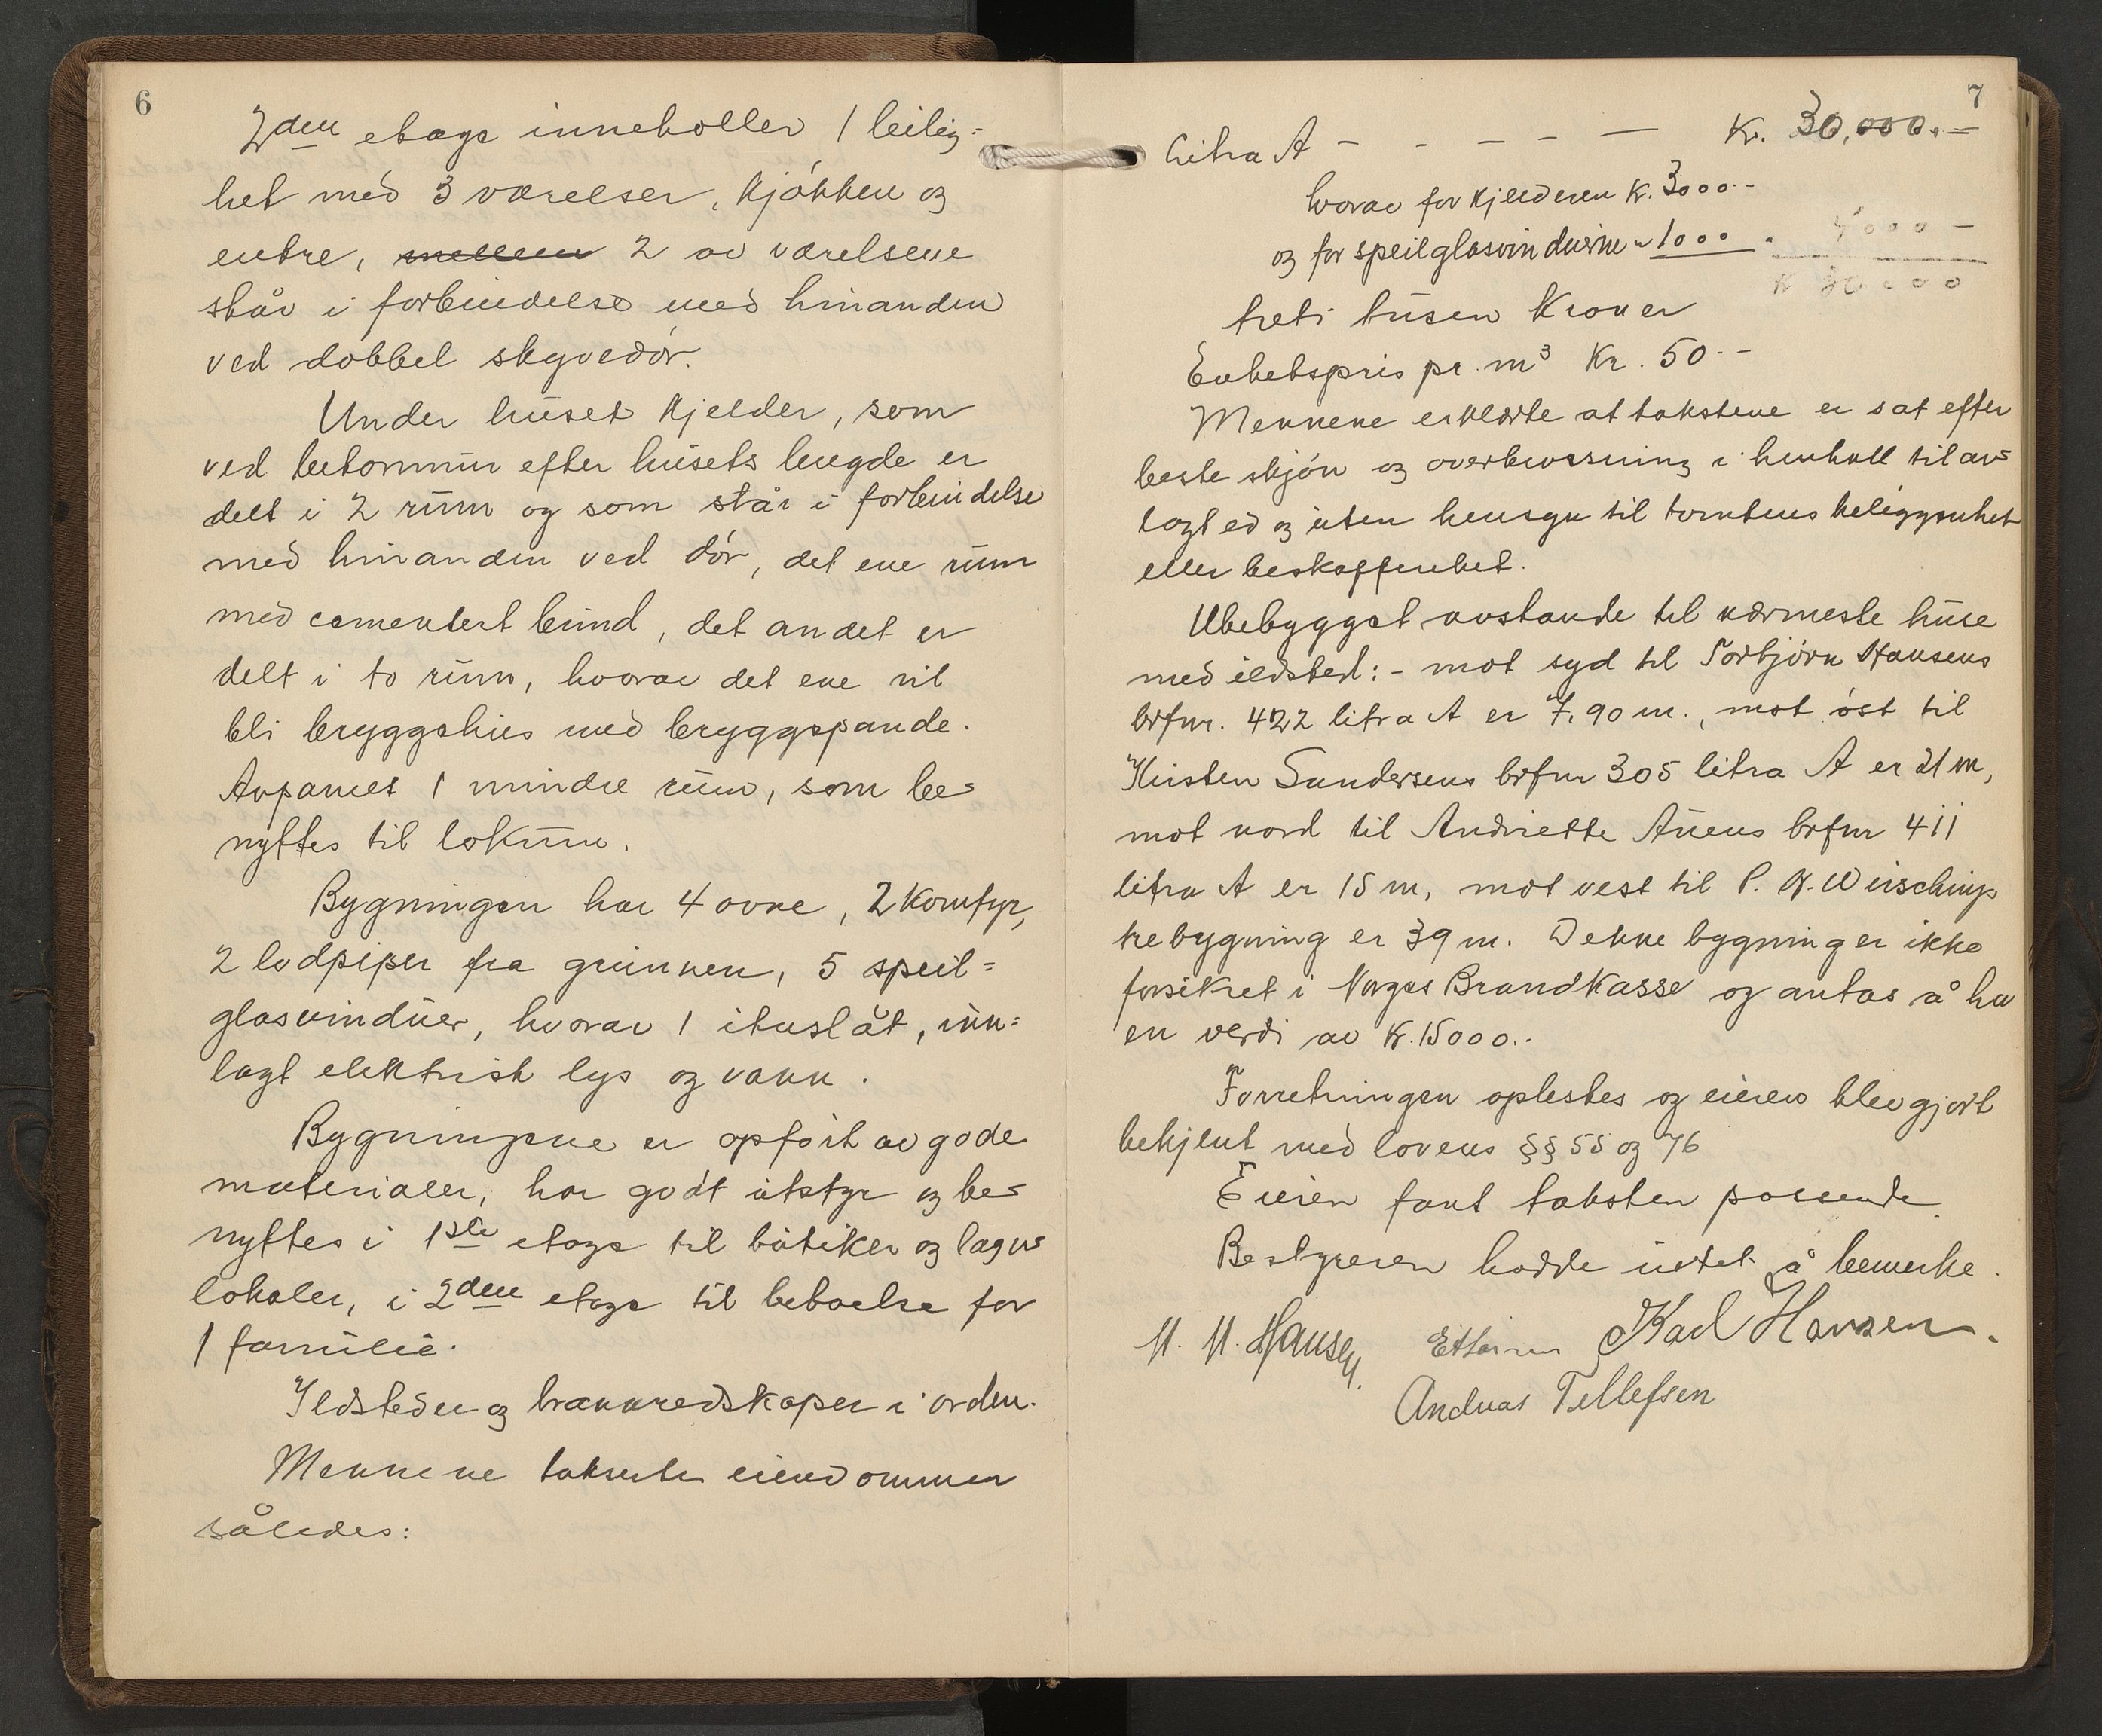 6
2den etage inneholler 1 leilig-
het med 3 værelser, kjøkken og
entre, mellem 2 av værelsene
står i forbindelse med hinanden
ved dobbel skyvedør.
Under huset kjelder, som
ved betonmur efter husets lengde er
delt i 2 rum og som står i forbindelse
med hinanden ved dør, det ene rum
med cementert bund, det andet er
delt i to rum, hvorav det ene vil
bli bryggehus med bryggepande.
Avpanelt 1 mindre rum, som be-
nyttes til lokum.
Bygningen har 4 ovne, 2 komfyr,
2 lodpiper fra grunnen, 5 speil-
glasvinduer, hvorav 1 ituslåt, inn-
lagt elektrisk lys og vann.
Bygningene er opført av gode
materialer, har godt utstyr og be-
nyttes i 1ste etage til butiker og lager-
lokaler, i 2den etage til beboelse for
1 familie.
Ildsteder og brannredskaper i orden.
Mennene takserte eiendommen
således:
7
Litra A - - - - - Kr. 30,000.-
hvorav for kjelderen Kr. 3000.-
og for speilglasvinduerne " 1000. 4000 -
treti tusen Kroner
Enhetspris pr. m³ Kr. 50.-
Mennene erklærte at takstene er sat efter
beste skjøn og overbevisning i henholl til av-
lagt ed og uten hensyn til tomtens beliggenhet
eller beskaffenhet.
Ubebygget avstande til nærmeste huse
med ildsted: - mot syd til Torbjørn Hansens
brfnr. 422 litra A er 7,90 m., mot øst til
Kirsten Sundersens brfnr 305 litra A er 21 m,
mot nord til Andriette Auens brfnr 411
litra A er 15 m, mot vest til P. A. Wirschings
trebygning er 39 m. Denne bygning er ikke
forsikret i Norges Brandkasse og antas å ha
en verdi av Kr. 15000.-
Forretningen oplestes og eieren blev gjort
bekjent med lovens §§ 55 og 76
Eieren fant taksten passende.
Bestyreren hadde intet å bemerke.
M. M. Hansen. Karl Hansen.
Andreas Tellefsen